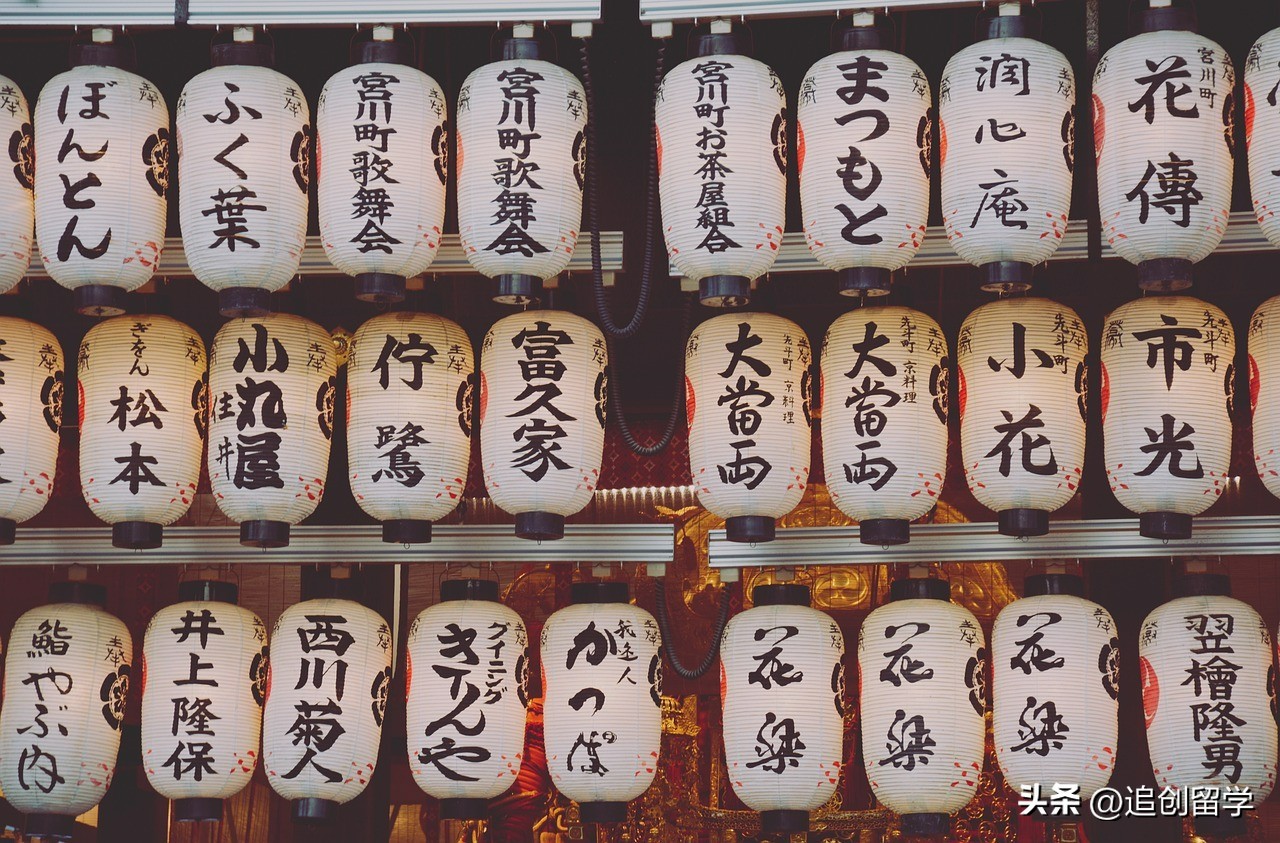 奉
献
ぼんとん
ふく葉
宮川町歌舞会
宮川町歌舞会
宮川町お茶屋組合
まつもと
润心庵
宮川町
花傳
ぎおん
松本
小丸屋
住井
佇鷺
富久家
先斗町 京料理
大當両
先斗町 京料理
大當両
先斗町
小花
先斗町
市光
鮨やぶ内
井上隆保
西川菊人
ダイニング
きりんや
花樂
花樂
花樂
翌檜隆男
头条 @追创留学